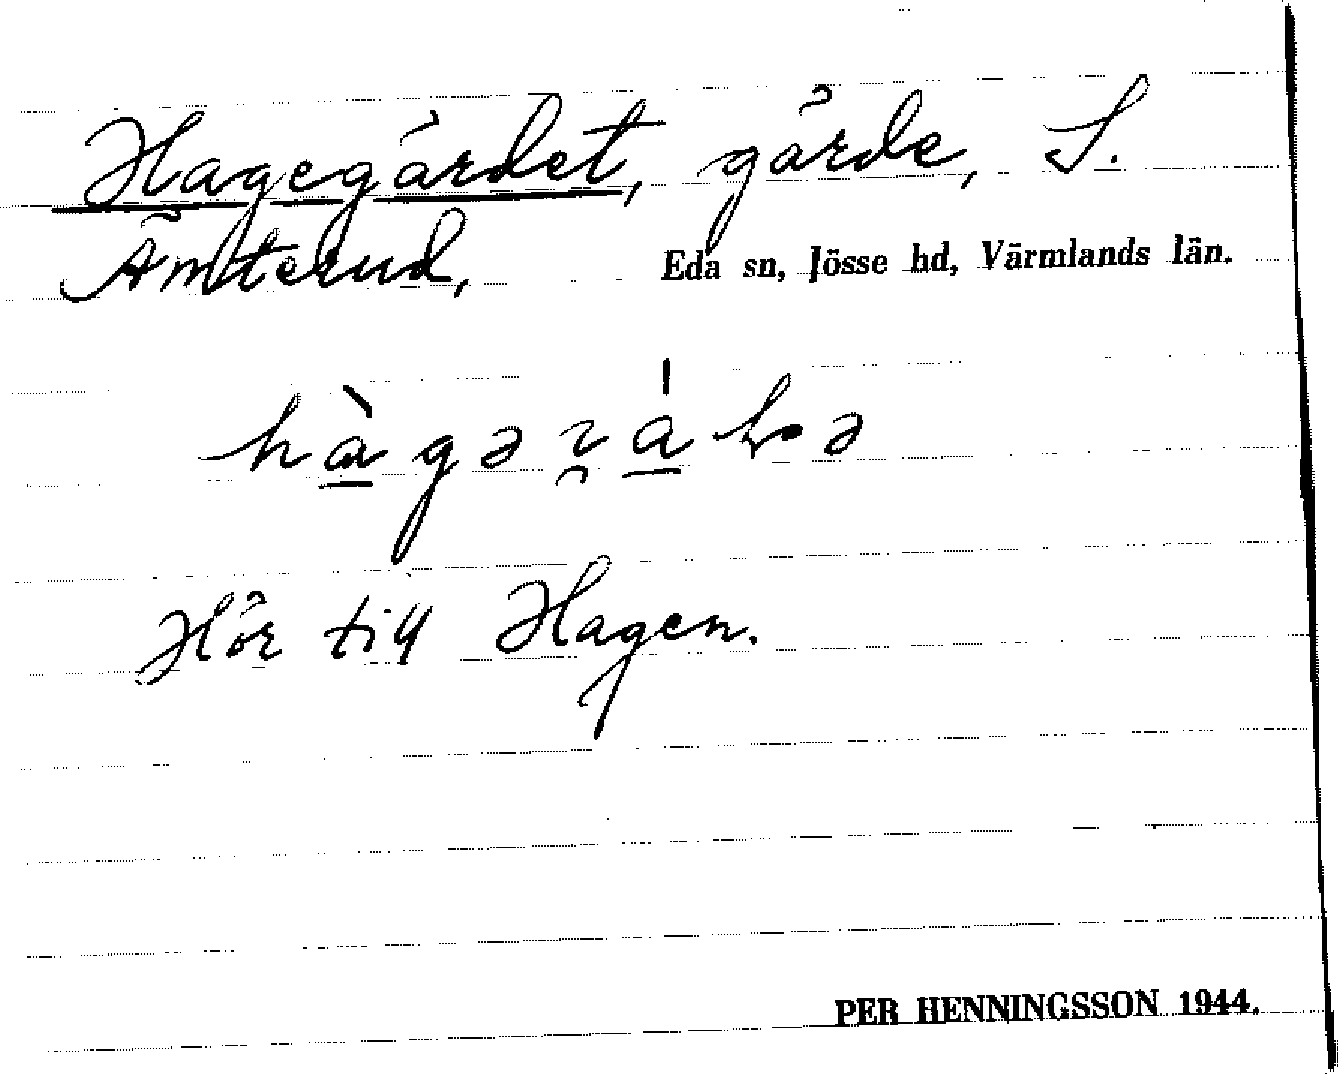 Hagegärdet, gärde, S.
Ämterud, Eda sn, Jösse hd, Värmlands län.
Hör till Hagen.
PER HENNINGSSON 1944.